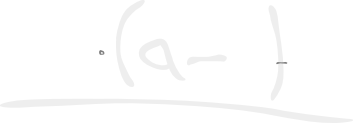 (a- )